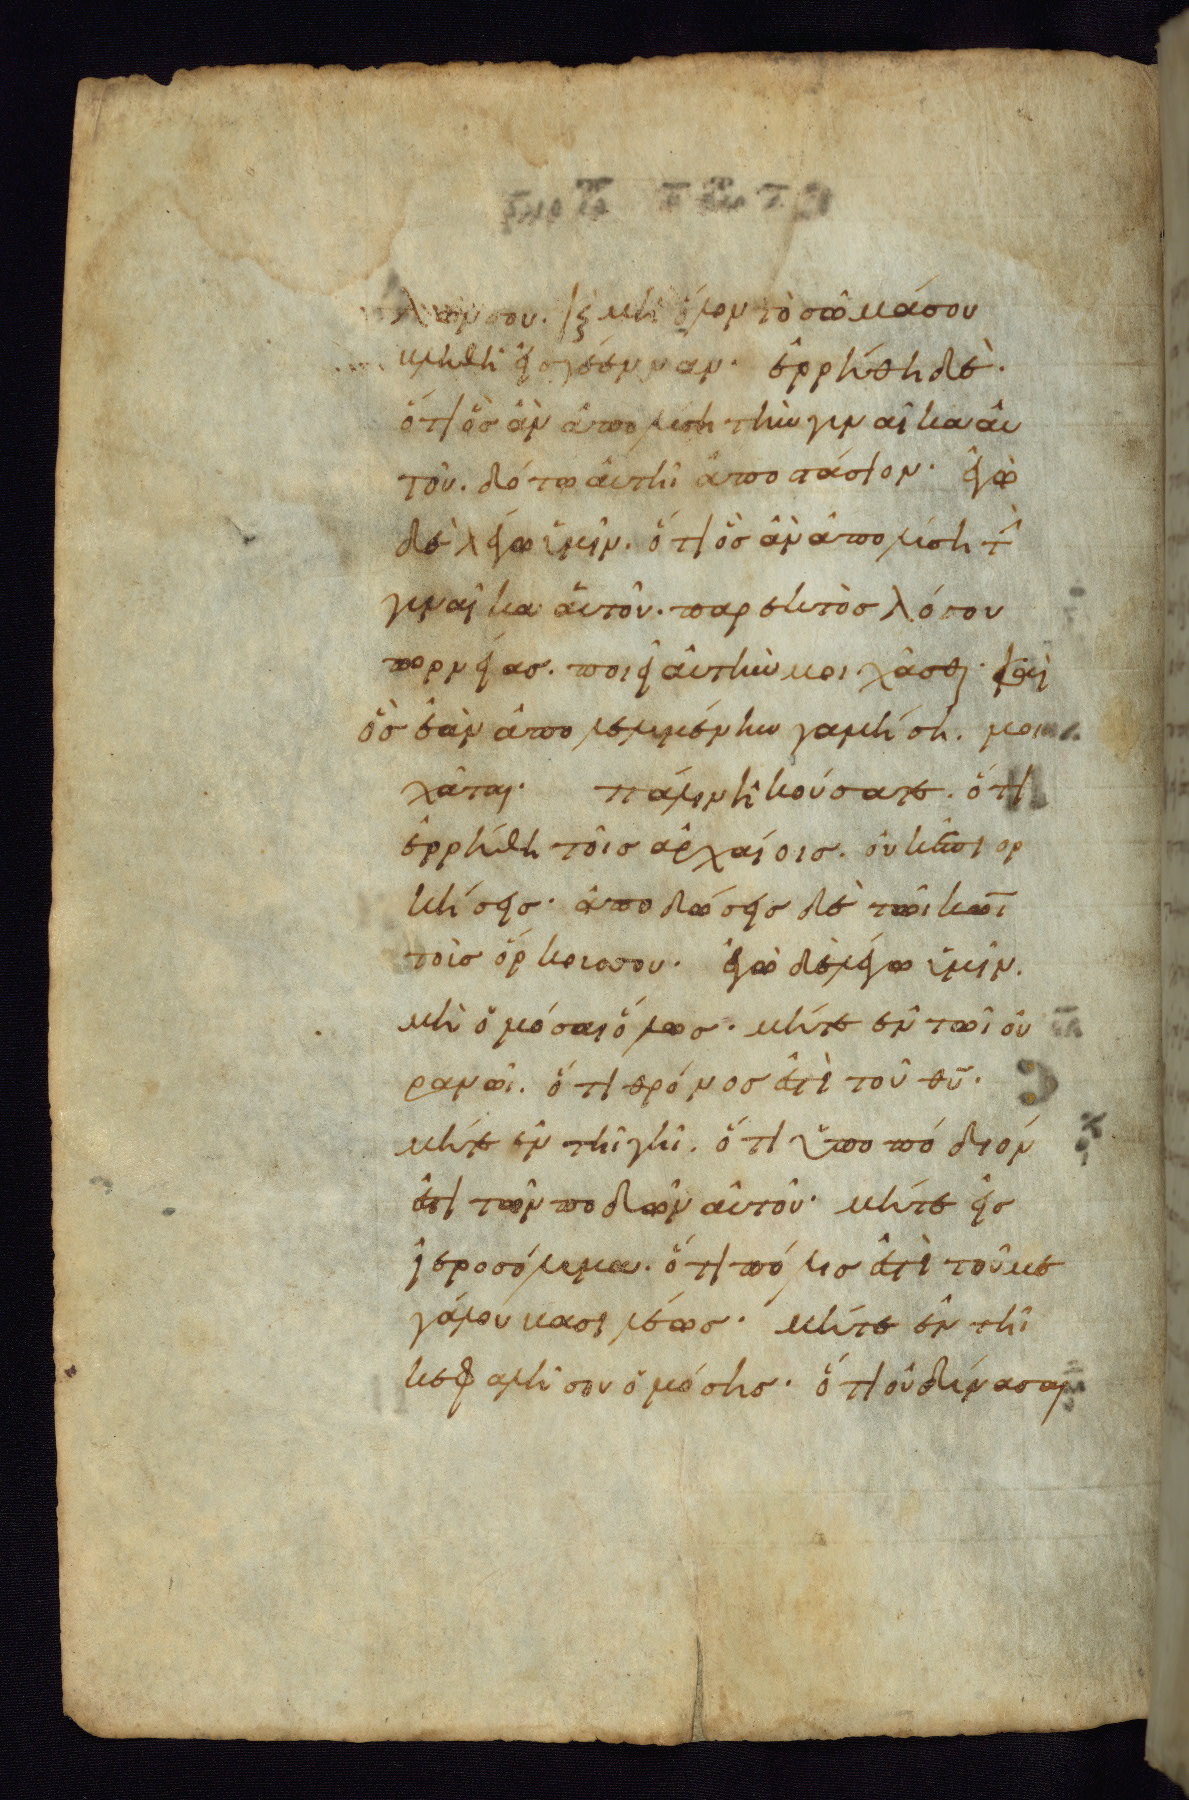 λῶν σου. καὶ μὴ ὅλον τὸ σῶμά σου
βληθῆ εἰς γέενναν. ἐρρήθη δὲ.
ὅτι ὃς ἂν ἀπολύση τὴν γυναῖκα αὐ
τοῦ. δότω αὐτῆ ἀποστάσιον. ἐγὼ
δὲ λέγω ὑμῖν. ὅτι ὃς ἂν ἀπολύση τ̀
γυναῖκα αὐτοῦ. παρεκτὸς λόγου
πορνείας. ποιεῖ αὐτὴν μοιχᾶσθαι. καὶ
ὃς ἐὰν ἀπολελυμένην γαμήση. μοι
χᾶται. πάλιν ἠκούσατε. ὅτι
ἐρρήθη τοῖς ἀρχαίοις. οὐκ ἐπιορ
κήσεις. ἀποδώσεις δὲ τῶι κῶι
τοὺς ὅρκους σου. ἐγὼ δὲ λέγω ὑμῖν.
μὴ ὀμόσαι ὅλως. μήτε ἐν τῶι οὐ
ρανῶι. ὅτι θρόνος ἐστὶ τοῦ θυ̅.
μήτε ἐν τῆ γῆ. ὅτι ὑποπόδιόν
ἐστι τῶν ποδῶν αὐτοῦ. μήτε εἰς
ἱεροσόλυμα. ὅτι πόλις ἐστὶ τοῦ με
γάλου βασιλέως. μήτε ἐν τῆ
κεφαλῆ σου ὀμόσης. ὅτι οὐ δύνασαι